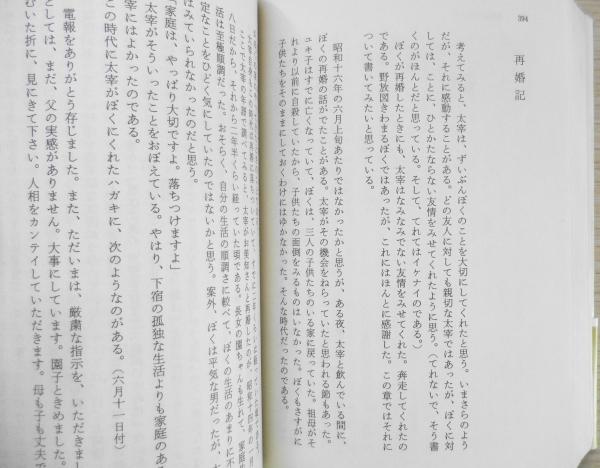 394
再婚記
考えてみると、太宰は、ずいぶんぼくのことを大切にしてくれたと思う。いまさらのよう
だが、それに感動することがある。どの友人に対しても親切な太宰ではあったが、ぼくに対
しては、ことに、ひとかたならない友情をみせてくれたように思う。（てれないで、そう書
くのがほんとだと思っている。そして、てれてはイケナイのである。）
ぼくが再婚したときにも、太宰はなみなみでない友情をみせてくれた。奔走してくれたの
である。野放図きわまるぼくではあったが、これにはほんとに感謝した。この章ではそれに
ついて書いてみたいと思っている。
昭和十六年の六月上旬あたりではなかったかと思うが、ある夜、太宰と飲んでいる間に、
ぼくの再婚の話がでたことがある。太宰がその機会をねらっていたと思われる節もあった。
ユキ子はすでに亡くなっていて、ぼくは、三人の子供たちのいる家に戻っていた。祖母がそ
れより以前に自殺していたから、子供たちの面倒をみるものはいなかった。ぼくもさすがに
子供たちをそのままにしておくわけにはゆかなかった。そんな時代だったのである。
ここで太宰の年譜で調べてみると、太宰がお美知さんと再婚したのが、昭和十四年の一月
八日だから、それから二年半くらい経っていた頃である。長女の園ちゃんも生れて、家庭生
活は至極順調だった。おそらく、自分の生活の順調さに較べて、ぼくの生活のあまりに不
定なことをひどく気にしていたのではないかと思う。案外、ぼくは平気な男だったが、太
はみていられなかったのだと思う。
「家庭は、やっぱり大切ですよ。落ちつけますよ」
太宰がそういったことをおぼえている。やはり、下宿の孤独な生活よりも家庭のある
宰にはよかったのである。
この時代に太宰がぼくにくれたハガキに、次のようなのがある。（六月十一日付）
電報をありがとう存じました。また、ただいまは、厳粛な指示を、いただきまし
としては、まだ、父の実感がありません。大事にしています。園子ときめました。
むいた折に、見にきて下さい。人相をカンテイしていただきます。母も子も丈夫で